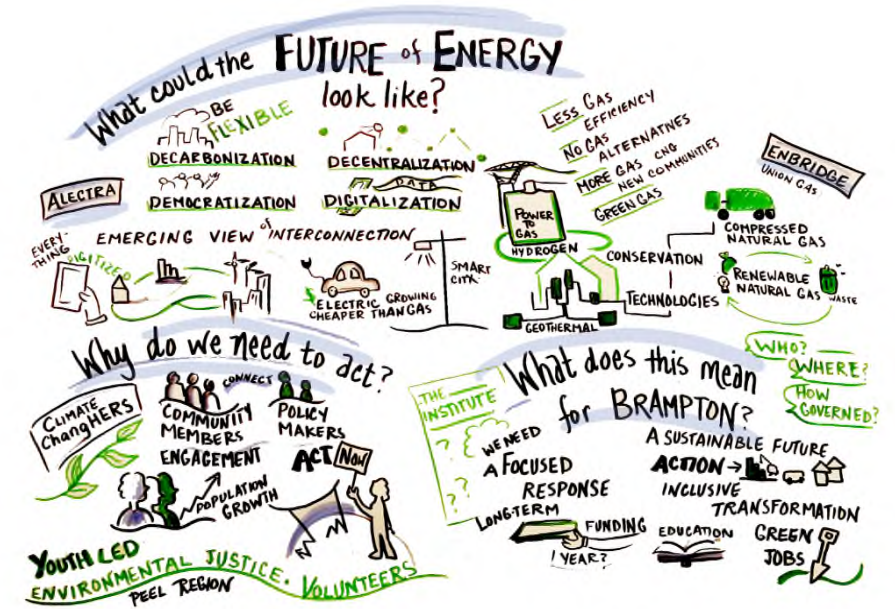 What could the FUTURE of ENERGY
look like?
BE
FLEXIBLE
DECARBONIZATION
DECENTRALIZATION
ALECTRA
DEMOCRATIZATION
DATA
DIGITALIZATION
EMERGING VIEW of INTERCONNECTION
EVERY-
THING
DIGITIZED
$ ELECTRIC GROWING
CHEAPER THAN GAS
SMART
CITY
LESS GAS
EFFICIENCY
NO GAS
ALTERNATIVES
MORE GAS CNG
NEW COMMUNITIES
GREEN GAS
ENBRIDGE
UNION GAS
POWER
TO
GAS
HYDROGEN
CONSERVATION
TECHNOLOGIES
GEOTHERMAL
COMPRESSED
NATURAL GAS
RENEWABLE
NATURAL GAS
WASTE
Why do we need to act?
CLIMATE
ChangHERS
CONNECT
COMMUNITY
MEMBERS
ENGAGEMENT
POLICY
MAKERS
ACT NOW
POPULATION
GROWTH
YOUTH LED
ENVIRONMENTAL JUSTICE. VOLUNTEERS
PEEL REGION
What does this mean
for BRAMPTON?
WHO?
WHERE?
HOW
GOVERNED?
THE
INSTITUTE
?
? ?
?
WE NEED
A FOCUSED
RESPONSE
LONG-TERM
FUNDING
1 YEAR?
A SUSTAINABLE FUTURE
ACTION →
INCLUSIVE
TRANSFORMATION
EDUCATION
GREEN
JOBS